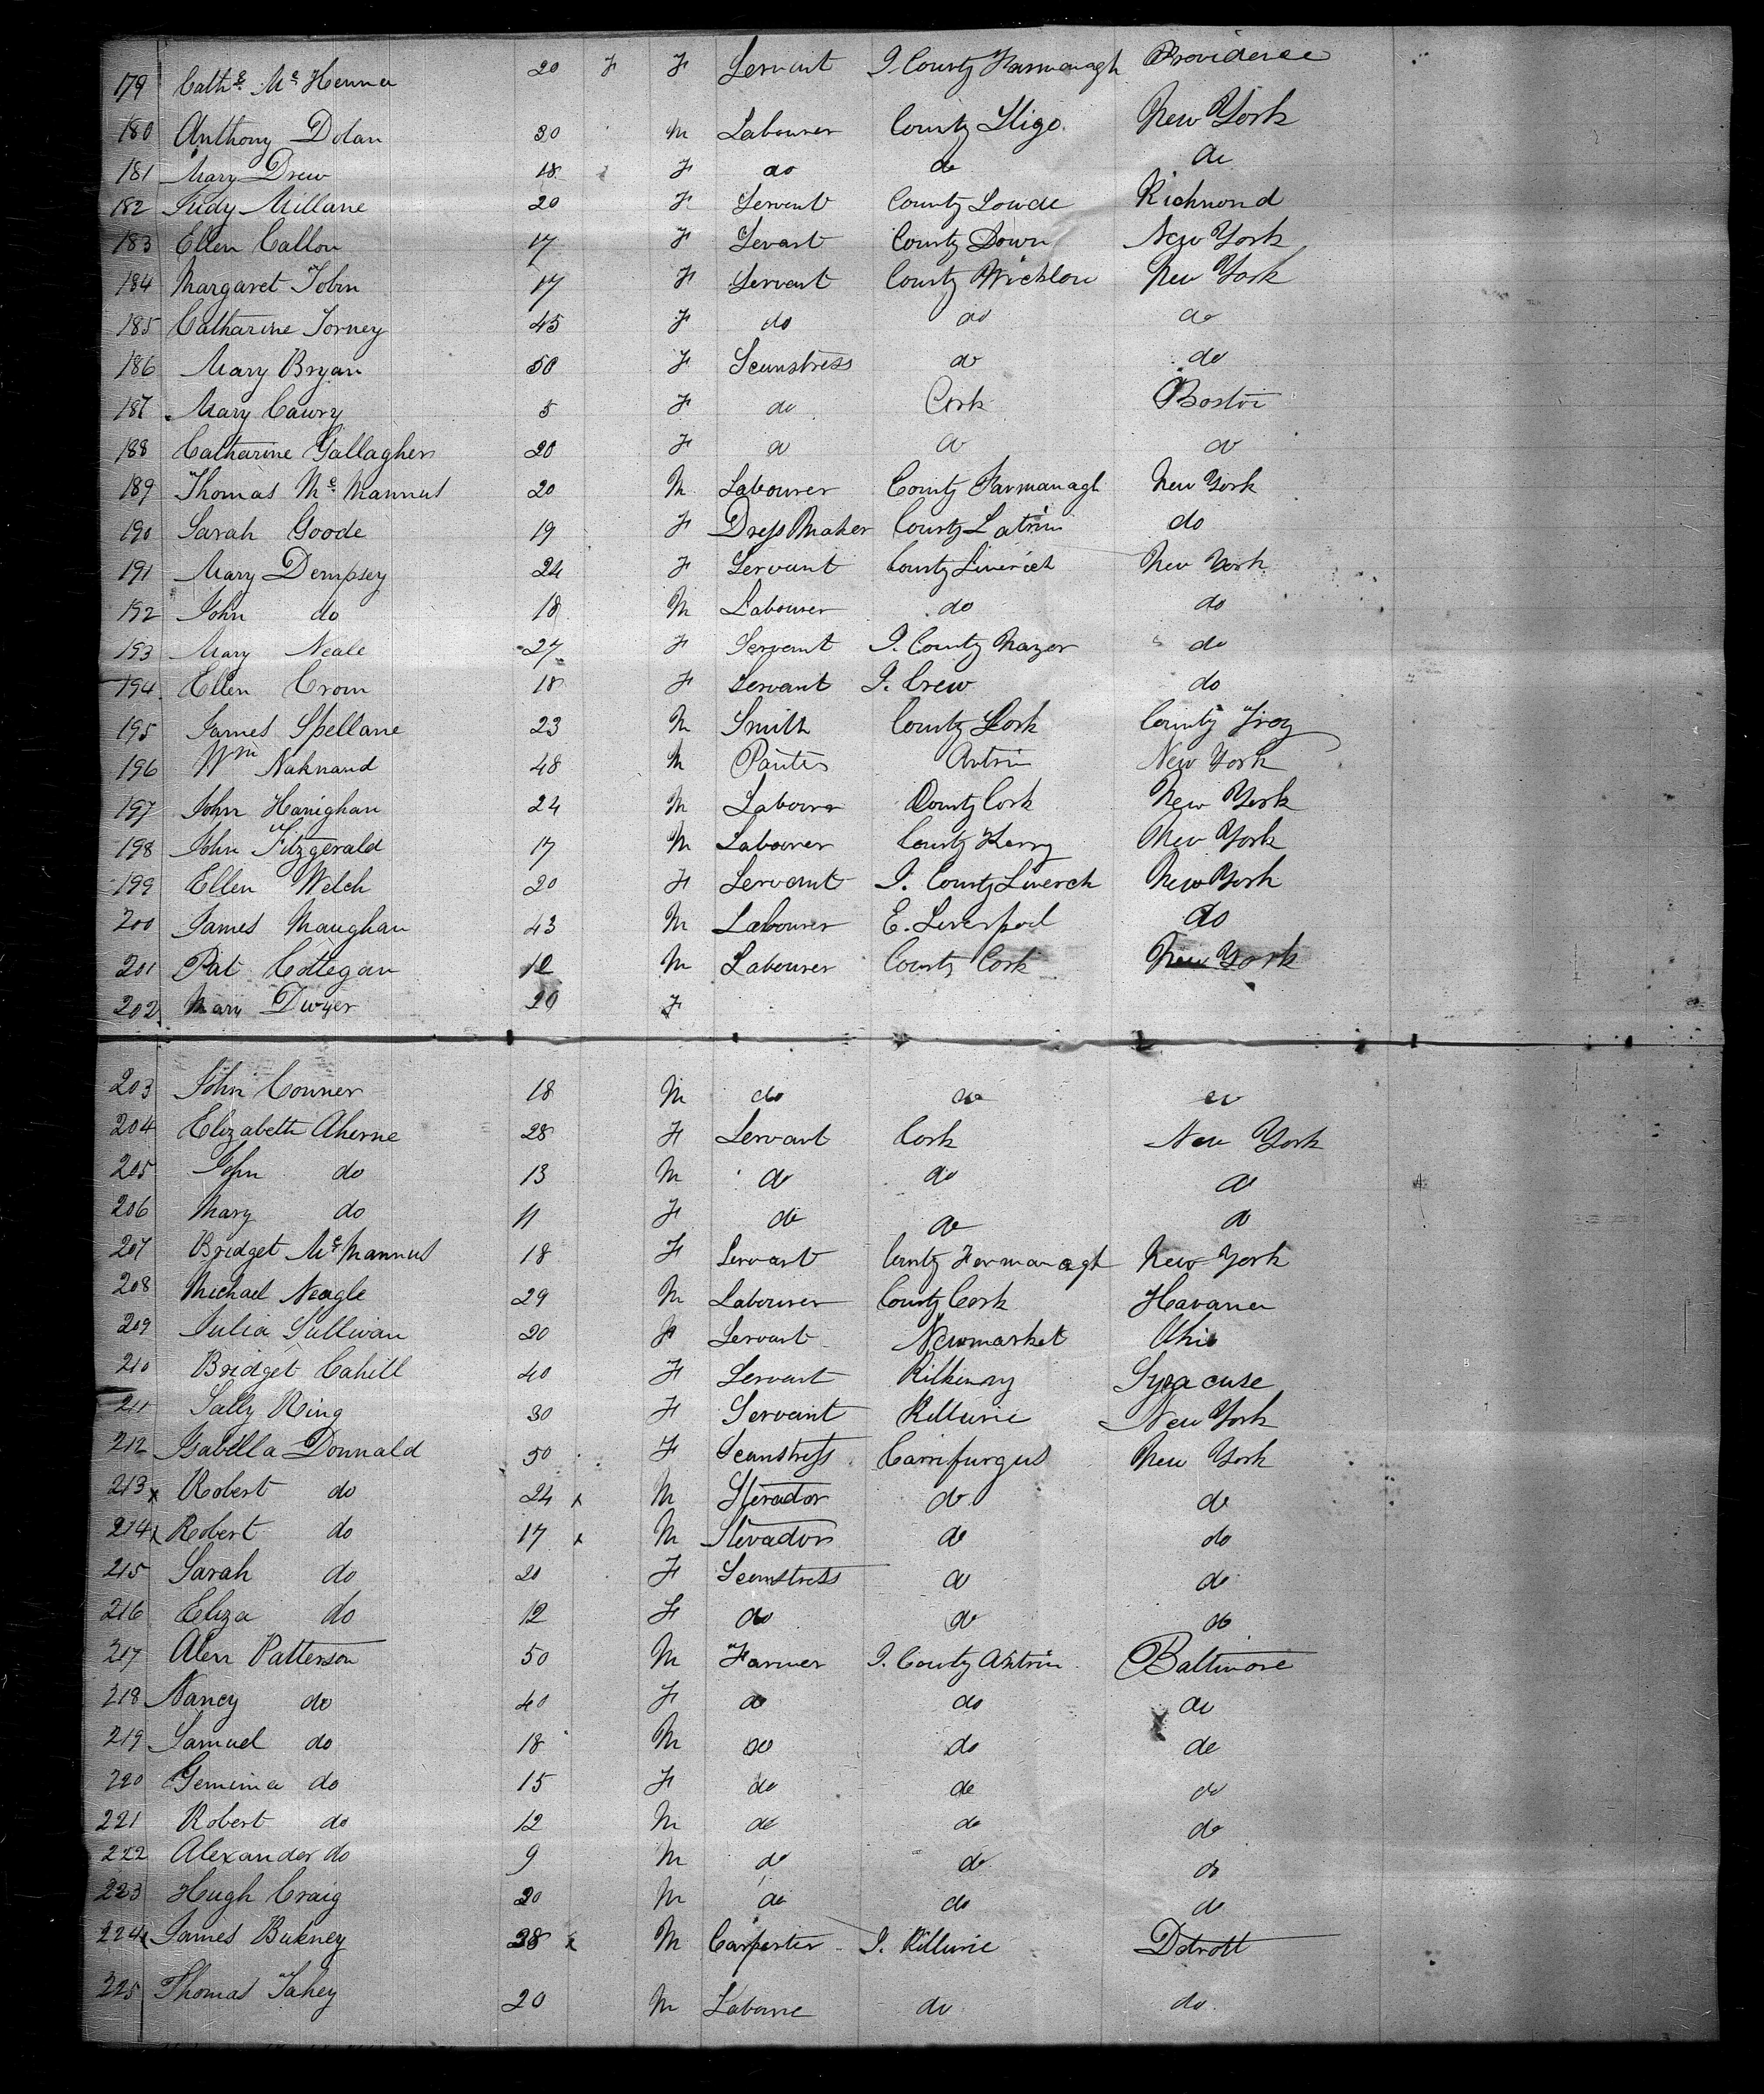 179 Cathe. Mc Kenna 20 F F Servant I. County Farmanagh Providence
180 Anthony Dolan 30 M Labourer County Sligo New York
181 Mary Drew 18 F do do do
182 Judy Millane 20 F Servant County Lowde Richmond
183 Ellen Callon 17 F Sevant County Down New York
184 Margaret Tobin 17 F Servant County Wichlow New York
185 Catharine Torney 45 F do do do
186 Mary Bryan 50 F Seamstress do do
187 Mary Cawry 5 F do Cork Boston
188 Catharine Gallagher 20 F do do do
189 Thomas Mc Mannus 20 M Labourer County Farmanagh New York
190 Sarah Goode 19 F Dress Maker County Latrim do
191 Mary Dempsey 24 F Servant County Limerick New York
192 John do 18 M Labourer do do
193 Mary Neale 27 F Servant I. County Mayor do
194 Ellen Crow 18 F Servant I. Crew do
195 James Spellane 23 M Smith County Cork County Troy
196 Wm 48 M Painter Antrim New York
197 John Hanighan 24 M Labourer County Cork New York
198 John Fitzgerald 17 M Labourer County Kerry New York
199 Ellen Welch 20 F Servant I. County Limerck New York
200 James Maughan 43 M Labourer E. Liverpool do
201 Pat Cottegan 12 M Labourer County Cork New York
202 Mary Dwyer 20 F
203 John Conner 18 M do do do
204 Elizabeth Aherne 28 F Servant Cork New York
205 John do 13 M do do do
206 Mary do 11 F do do do
207 Bridget Mc Mannus 18 F Servant County Farmanagh New York
208 Michael Neagle 29 M Labourer County Cork Havana
209 Julia Sullivan 20 F Servant Newmarket Ohio
210 Bridget Cahill 40 F Servant Kilkenny Syracuse
211 Sally Ring 30 F Servant Killurie New York
212 Isabella Donnald 50 F Seamstress Carrifurgus New York
213 x Robert do 24 x M Stevador do do
214 x Robert do 17 x M Stevador do do
215 Sarah do 20 F Seamstress do do
216 Eliza do 12 F do do do
217 Alexr Patterson 50 M Farmer I. County Antrim Baltimore
218 Nancy do 40 F do do do
219 Samuel do 18 M do do do
220 Gemima do 15 F do do do
221 Robert do 12 M do do do
222 Alexander do 9 M do do do
223 Hugh Craig 20 M do do do
224 x James Bukney 28 x M Carpenter I. Killurie Detrott
225 Thomas Fahey 20 M Laboure do do